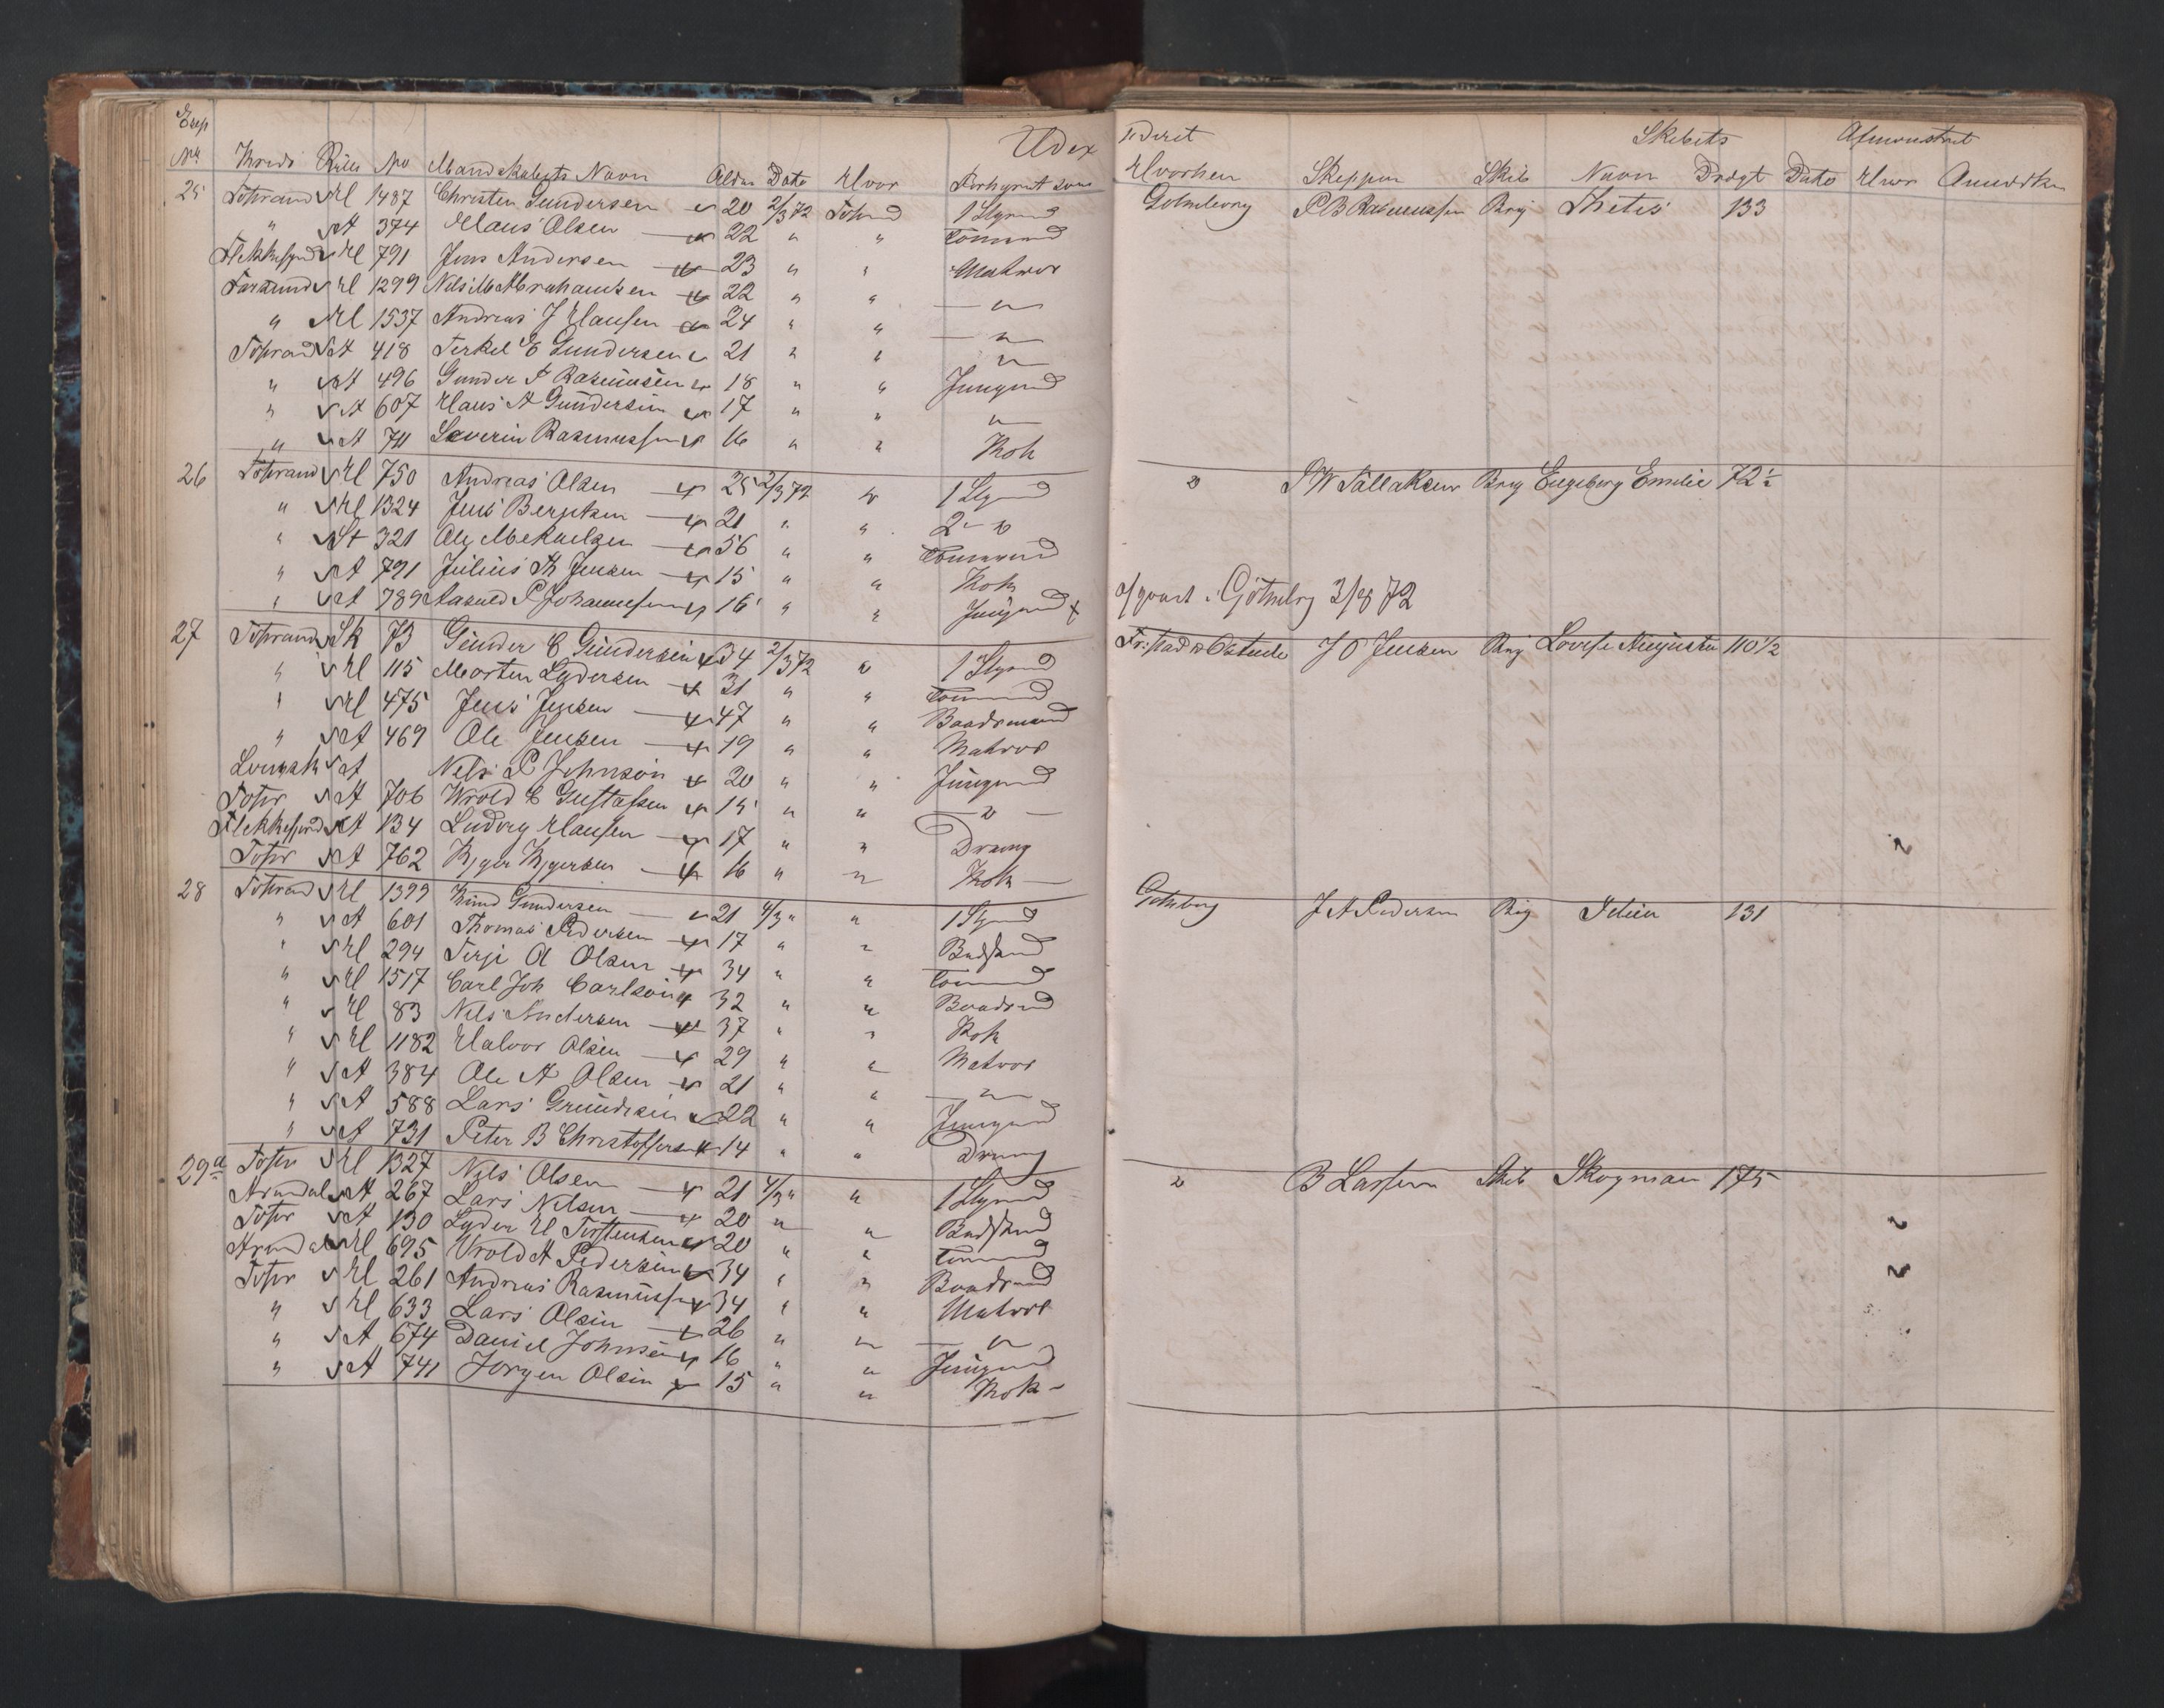 Exp Udex ederet Skibets Afmønstret
No Kreds Rulle No Mandskabets Navn Alder Dato Hvor Forhyret som Hvorhen Skipper Skib Navn Drægt Dato Hvor Anmærkn
25 Tvstrand H 1487 Christen Gundersen 20 2/3 72 Tvstrand 1 Styrmd Gotheborg P B Rasmussen Brig Thetis 133
" A 374 Klaus Olsen 22 " " Tømmermd
Flekkefjord H 791 Jens Andersen 23 " " Matros
Farsund H 1299 Nils M Abrahamsen 22 " " — " —
" H 1537 Andreas J Hansen 24 " " — " —
Tvstrand A 418 Terkel E Gundersen 21 " " "
" A 496 Gunder P Rasmussen 18 " " Jungmd
" A 607 Hans A Gundersen 17 " " "
" A 711 Severin Rasmussen 16 " " Kok
26 Tvstrand H 750 Andreas Olsen 25 2/3 72 " 1 Stymd " Brig Engeborg Emilie 72 1/2
" H 1324 Jens Berntsen 21 " " 2 - "
" St 321 Ole Mekaelsen 56 " " Tømmermd
" A 791 Julius M Jensen 15 " " Kok
" A 789 P Johannesen 16 " " Jungmd x afgaaet i Götheborg 3/8 72
27 Tvstrand Sk 73 Gunder E Gundersen 34 2/3 72 " 1 Styrmd Fr:stad Ostende J O Jensen Brig Lovise Augusta 110 1/2
" H 115 Morten Lydersen 31 " " Tømmd
" H 475 Jens Jensen 47 " " Baadsmand
" A 469 Ole Jensen 19 " " Matros
A Nels P Johnson 20 " " Jungmd
Tvstr A 706 Wrold E Gustafsen 15 " " — " —
Flekkefjord A 134 Ludvig Hansen 17 " " Dræng
Tvstr A 762 16 " " Kok —
28 Tvstrand H 1399 Knud Gundersen 21 4/3 " " 1 Stymd Gotheborg J A Pedersen Brig 131
" A 601 Thomas Pedersen 17 " " Bndstmd
" H 294 Terje A Olsen 34 " " Tømmd
" H 1517 Carl Joh Carlson 32 " " Baadsmd
" H 83 Nils Andersen 37 " " Kok
" H 1182 Halvor Olsen 29 " " Matros
" A 384 Ole A Olsen 21 " " — " —
" A 588 Lars Gundersen 22 " " Jungmd
" A 731 Peter B Christoffersen 14 " " Dræng
29a Tvstr H 1327 Nils Olsen 21 4/3 " " 1 Styrmd " B Larsen Skib Skogman 175
Arendal A 267 Lars Nilsen 20 " " Bndstmd
Tvstr A 130 Lyder H Torstensen 20 " " Tømmd
Arendal H 695 Wrold A Pedersen 34 " " Baadsmd
Tvstr H 261 Andreas Rasmussen 34 " " Matros
" H 633 Lars Olsen 26 " " — " —
" A 674 Daniel Johnsen 16 " " Jungmd
" A 741 Jorgen Olsen 15 " " Kok -